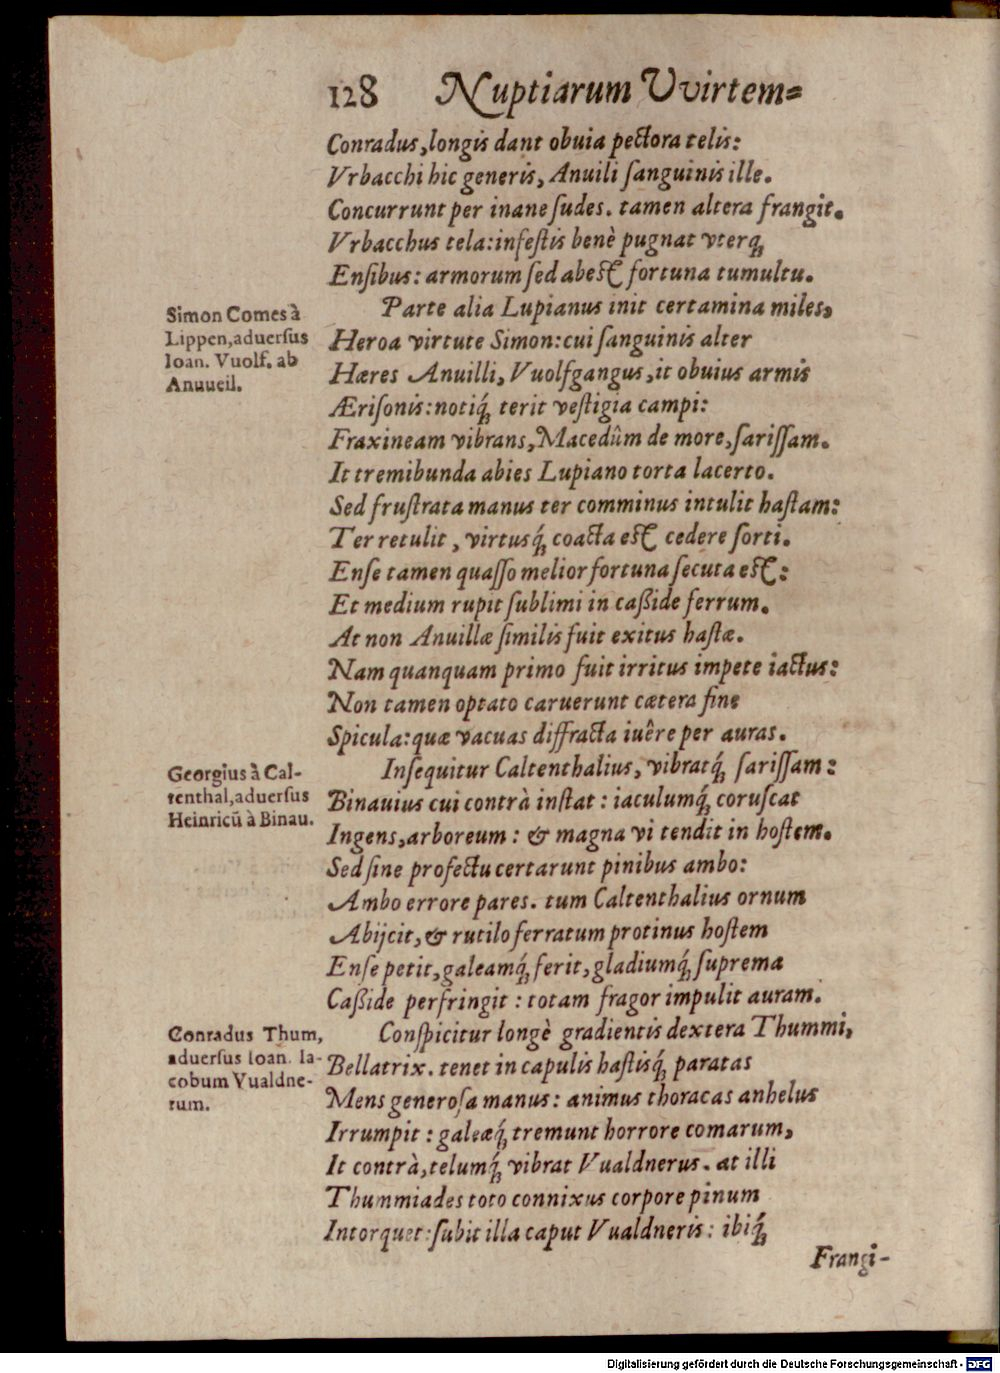 128 Nuptiarum Vvirtem=
Conradus, longis dant obuia pectora telis:
Vrbacchi hic generis, Anuili sanguinis ille.
Concurrunt per inane sudes. tamen altera frangit.
Vrbacchus tela: infestis benè pugnat vterq́;
Ensibus: armorum sed abest fortuna tumultu.
Simon Comes à
Lippen, aduersus
Ioan. Vuolf. ab
Anuueil.
Parte alia Lupianus init certamina miles,
Heroa virtute Simon: cui sanguinis alter
Hæres Anuilli, Vuolfgangus, it obuius armis
Ærisonis: notiq́; terit vestigia campi:
Fraxineam vibrans, Macedûm de more, sarissam.
It tremibunda abies Lupiano torta lacerto.
Sed frustrata manus ter comminus intulit hastam:
Ter retulit, virtusq́; coacta est cedere sorti.
Ense tamen quasso melior fortuna secuta est:
Et medium rupit sublimi in caßide ferrum.
At non Anuillæ similis fuit exitus hastæ.
Nam quanquam primo fuit irritus impete iactus:
Non tamen optato caruerunt cætera fine
Spicula: quæ vacuas diffracta iuêre per auras.
Georgius à Cal-
tenthal, aduersus
Heinricū à Binau.
Insequitur Caltenthalius, vibratq́; sarissam:
Binauius cui contrà instat: iaculumq́; coruscat
Ingens, arboreum: & magna vi tendit in hostem.
Sed sine profectu certarunt pinibus ambo:
Ambo errore pares. tum Caltenthalius ornum
Abijcit, & rutilo ferratum protinus hostem
Ense petit, galeamq́; ferit, gladiumq́; suprema
Caßide perfringit: totam fragor impulit auram.
Conradus Thum,
aduersus Ioan. Ia-
cobum Vualdne-
rum.
Conspicitur longè gradientis dextera Thummi,
Bellatrix. tenet in capulis hastisq́; paratas
Mens generosa manus: animus thoracas anhelus
Irrumpit: galeæq́; tremunt horrore comarum,
It contrà, telumq́; vibrat Vualdnerus. at illi
Thummiades toto connixus corpore pinum
Intorquet: subit illa caput Vualdneris: ibiq́;
Frangi-
Digitalisierung gefördert durch die Deutsche Forschungsgemeinschaft - DFG